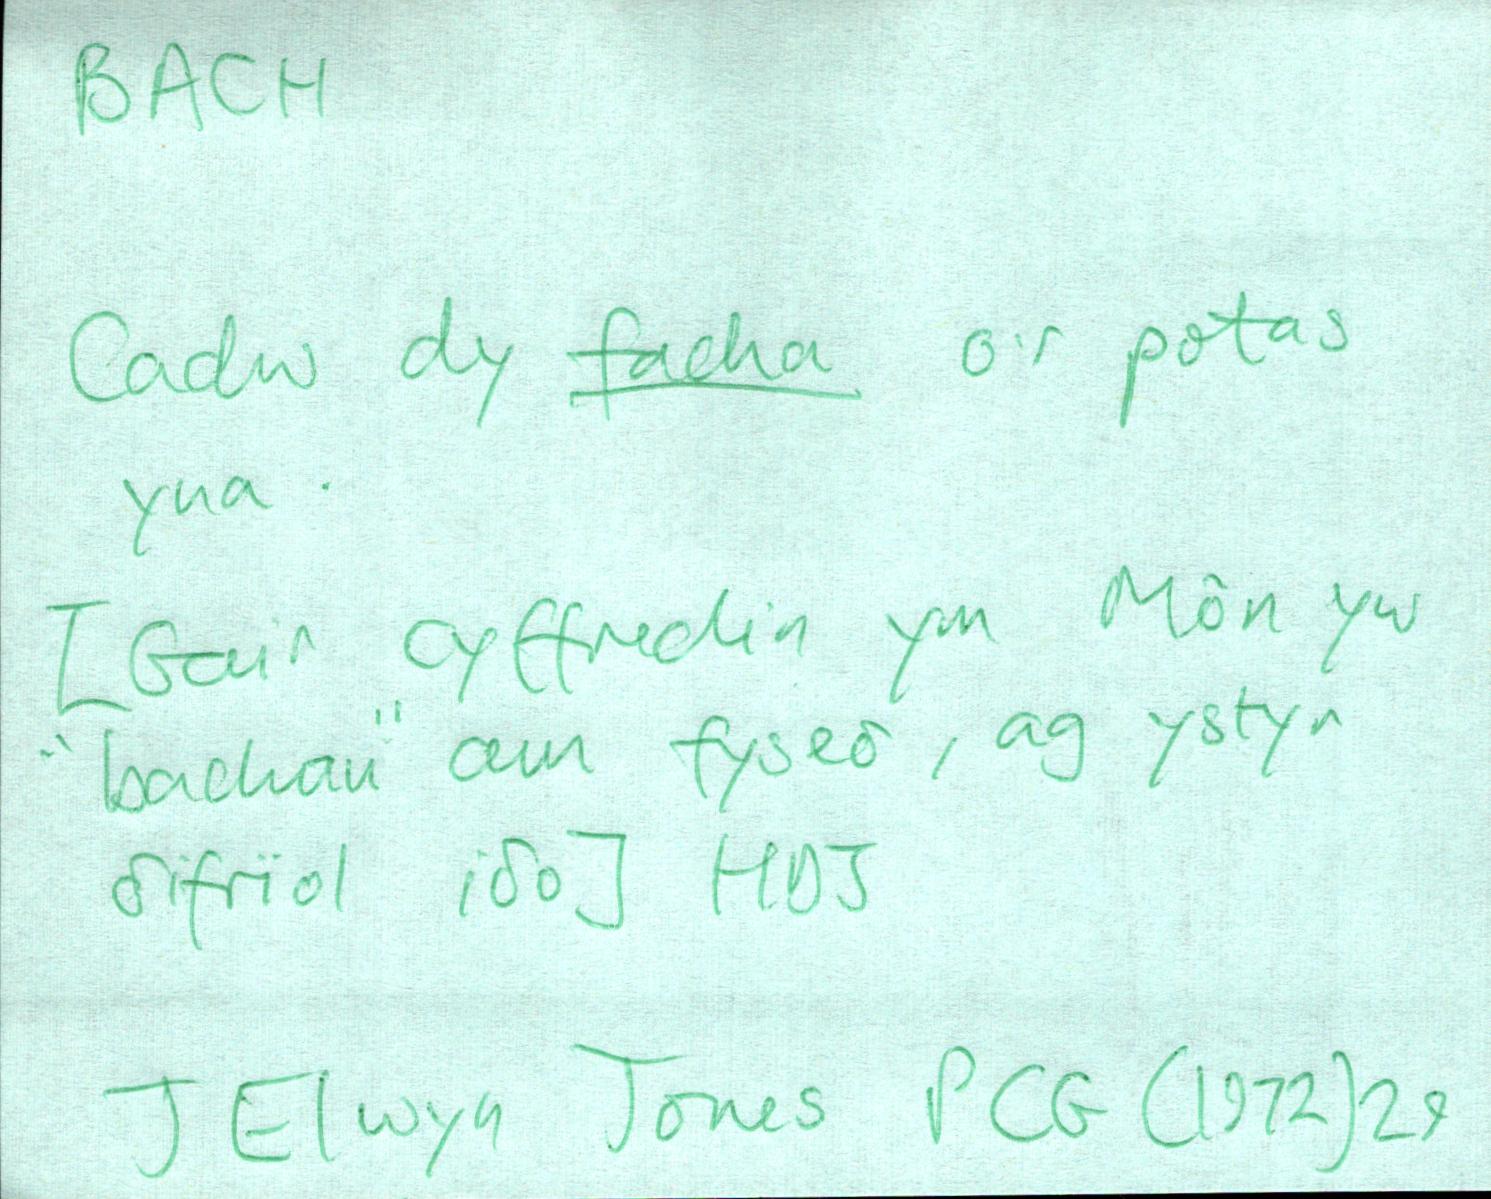 BACH
Cadw dy facha o'r potas
yna.
[Gair cyffredin ym Môn yw
"bachau" am fyseδ, ag ystyr
δifrïol iδo] HDJ
J Elwyn Jones PCG (1972) 29